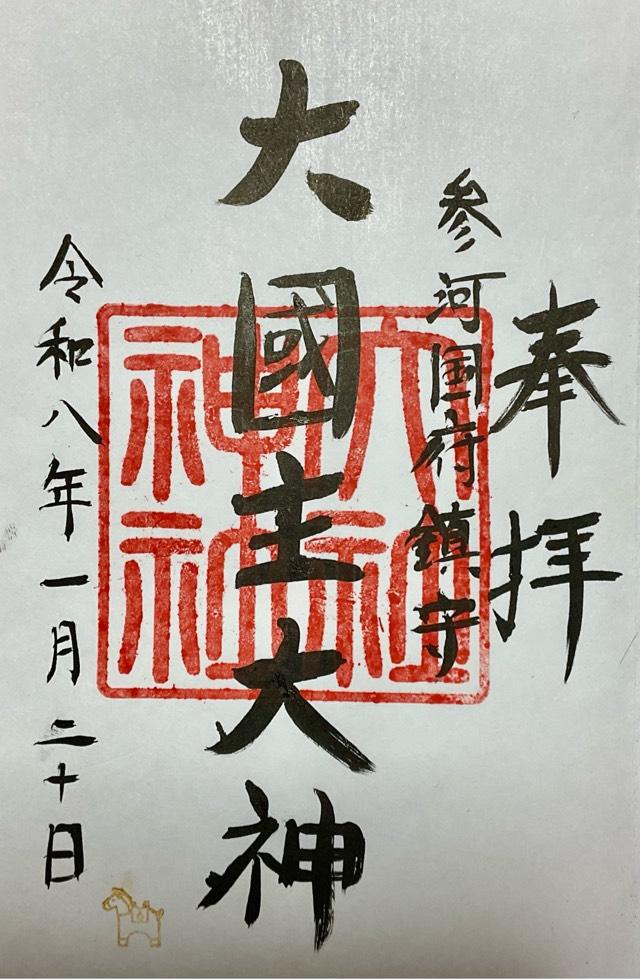 奉拝
参河国府鎮守
大國主大神
八社神社
令和八年一月二十日